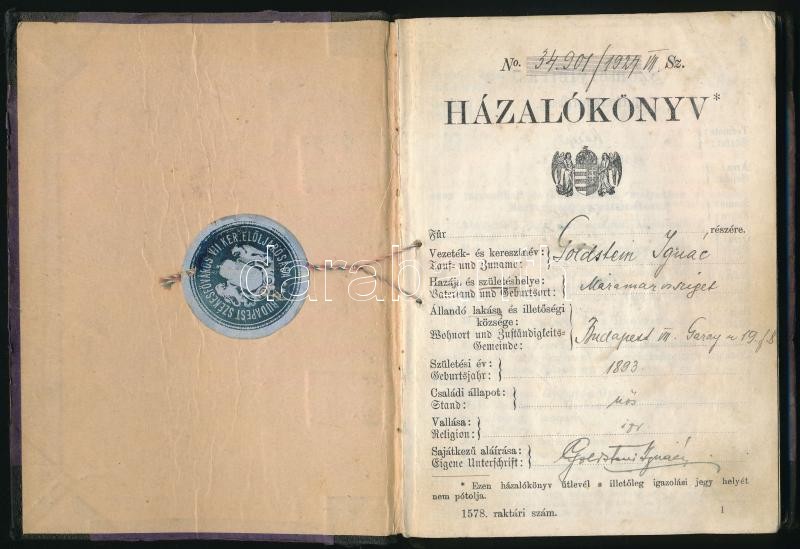 BUDAPEST SZÉKESFŐVÁROS VII. KER. ELÖLJÁRÓSÁGA
No. 34.901/1927 VII. Sz.
HÁZALÓKÖNYV*
Für Goldstein Ignác részére.
Vezeték- és keresztnév:
Tauf- und Zuname:
Hazája és születéshelye: Máramarossziget
Vaterland und Geburtsort:
Állandó lakása és illetőségi
községe:
Wohnort und Zuständigkeits-
Gemeinde: Budapest VII. Garay u 19. f. 8
Születési év: 1893.
Geburtsjahr:
Családi állapot: nős
Stand:
Vallása: izr
Religion:
Sajátkezű aláírása: Goldstein Ignác
Eigene Unterschrift:
* Ezen házalókönyv útlevél s illetőleg igazolási jegy helyét
nem pótolja.
1578. raktári szám. 1
darabanth